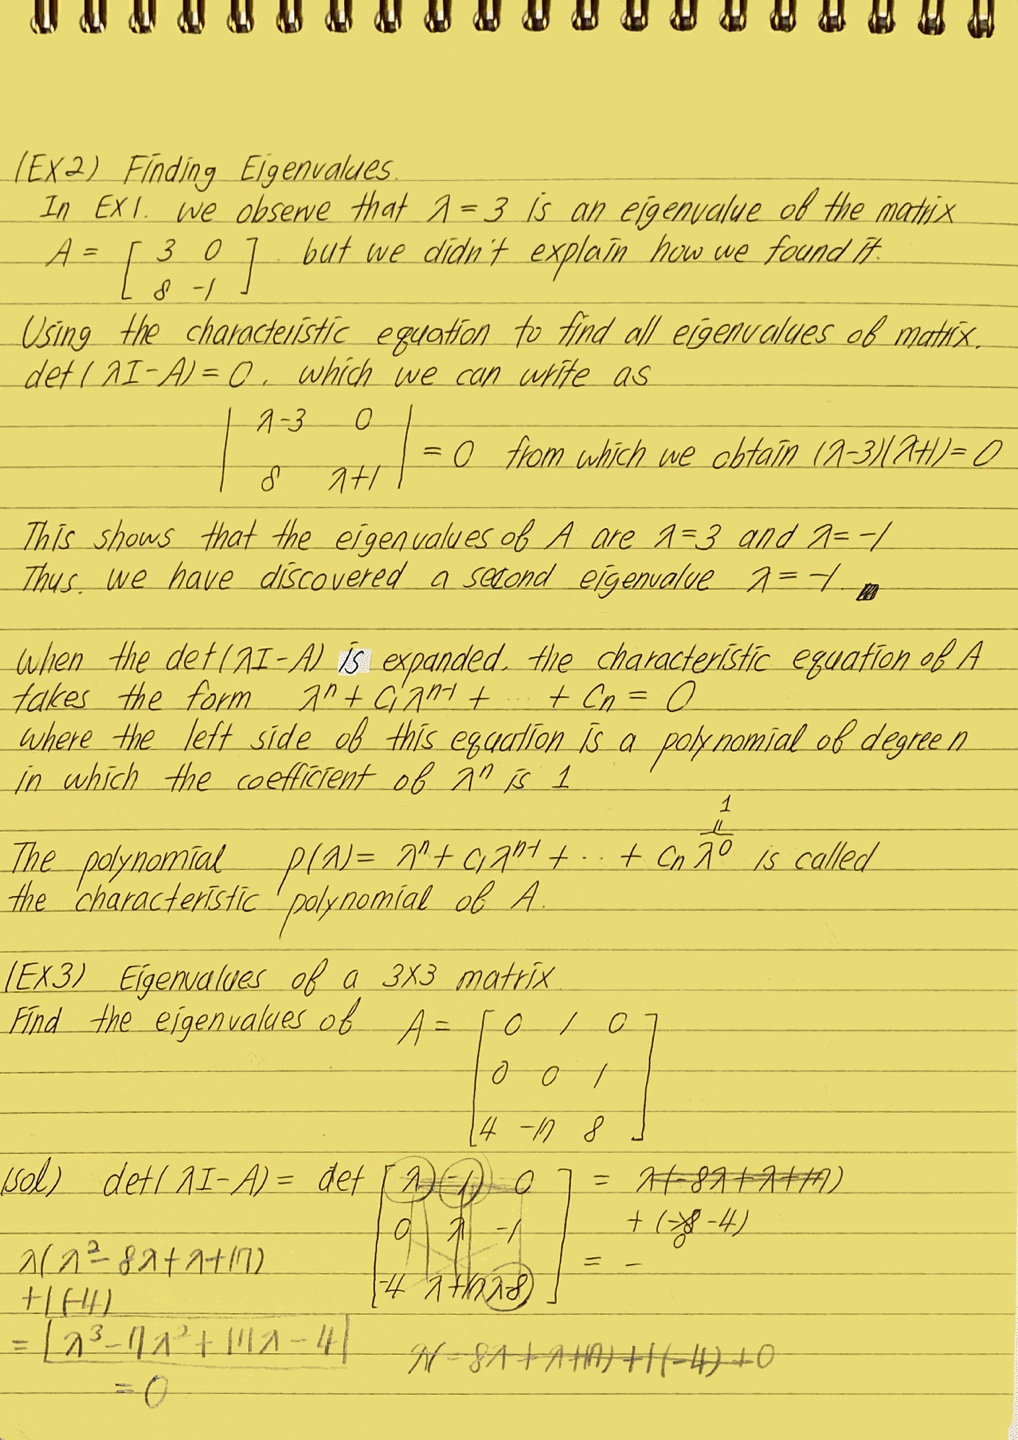 (EX2) Finding Eigenvalues.
In EX1. we observe that λ = 3 is an eigenvalue of the matrix
A = [ 3 0 ] . but we didn't explain how we found it.
8 -1
Using the characteristic equation to find all eigenvalues of matrix.
det(λI-A) = 0. which we can write as
| λ-3 0 |
= 0 from which we obtain (λ-3)(λ+1) = 0
8 λ+1
This shows that the eigenvalues of A are λ=3 and λ=-1
Thus. we have discovered a second eigenvalue λ = -1.
When the det(λI-A) is expanded. the characteristic equation of A
takes the form λⁿ + C₁λⁿ⁻¹ + ... + Cn = 0
where the left side of this equation is a polynomial of degree n
in which the coefficient of λⁿ is 1
1
॥
The polynomial P(λ) = λⁿ + C₁λⁿ⁻¹ + ... + Cn λ⁰ is called
the characteristic polynomial of A.
(EX3) Eigenvalues of a 3X3 matrix.
Find the eigenvalues of A = [ 0 1 0 ]
0 0 1
4 -17 8
(sol) det(λI-A) = det [ λ -1 0 ] = λ(-8λ+λ+17)
0 λ -1 + (-8-4)
λ(λ²-8λ+λ+17) = -
-4 λ+17 λ-8
+1(-4)
= λ³-7λ²+17λ-4
λ(-8λ+λ+17)+1(-4)+0
= 0